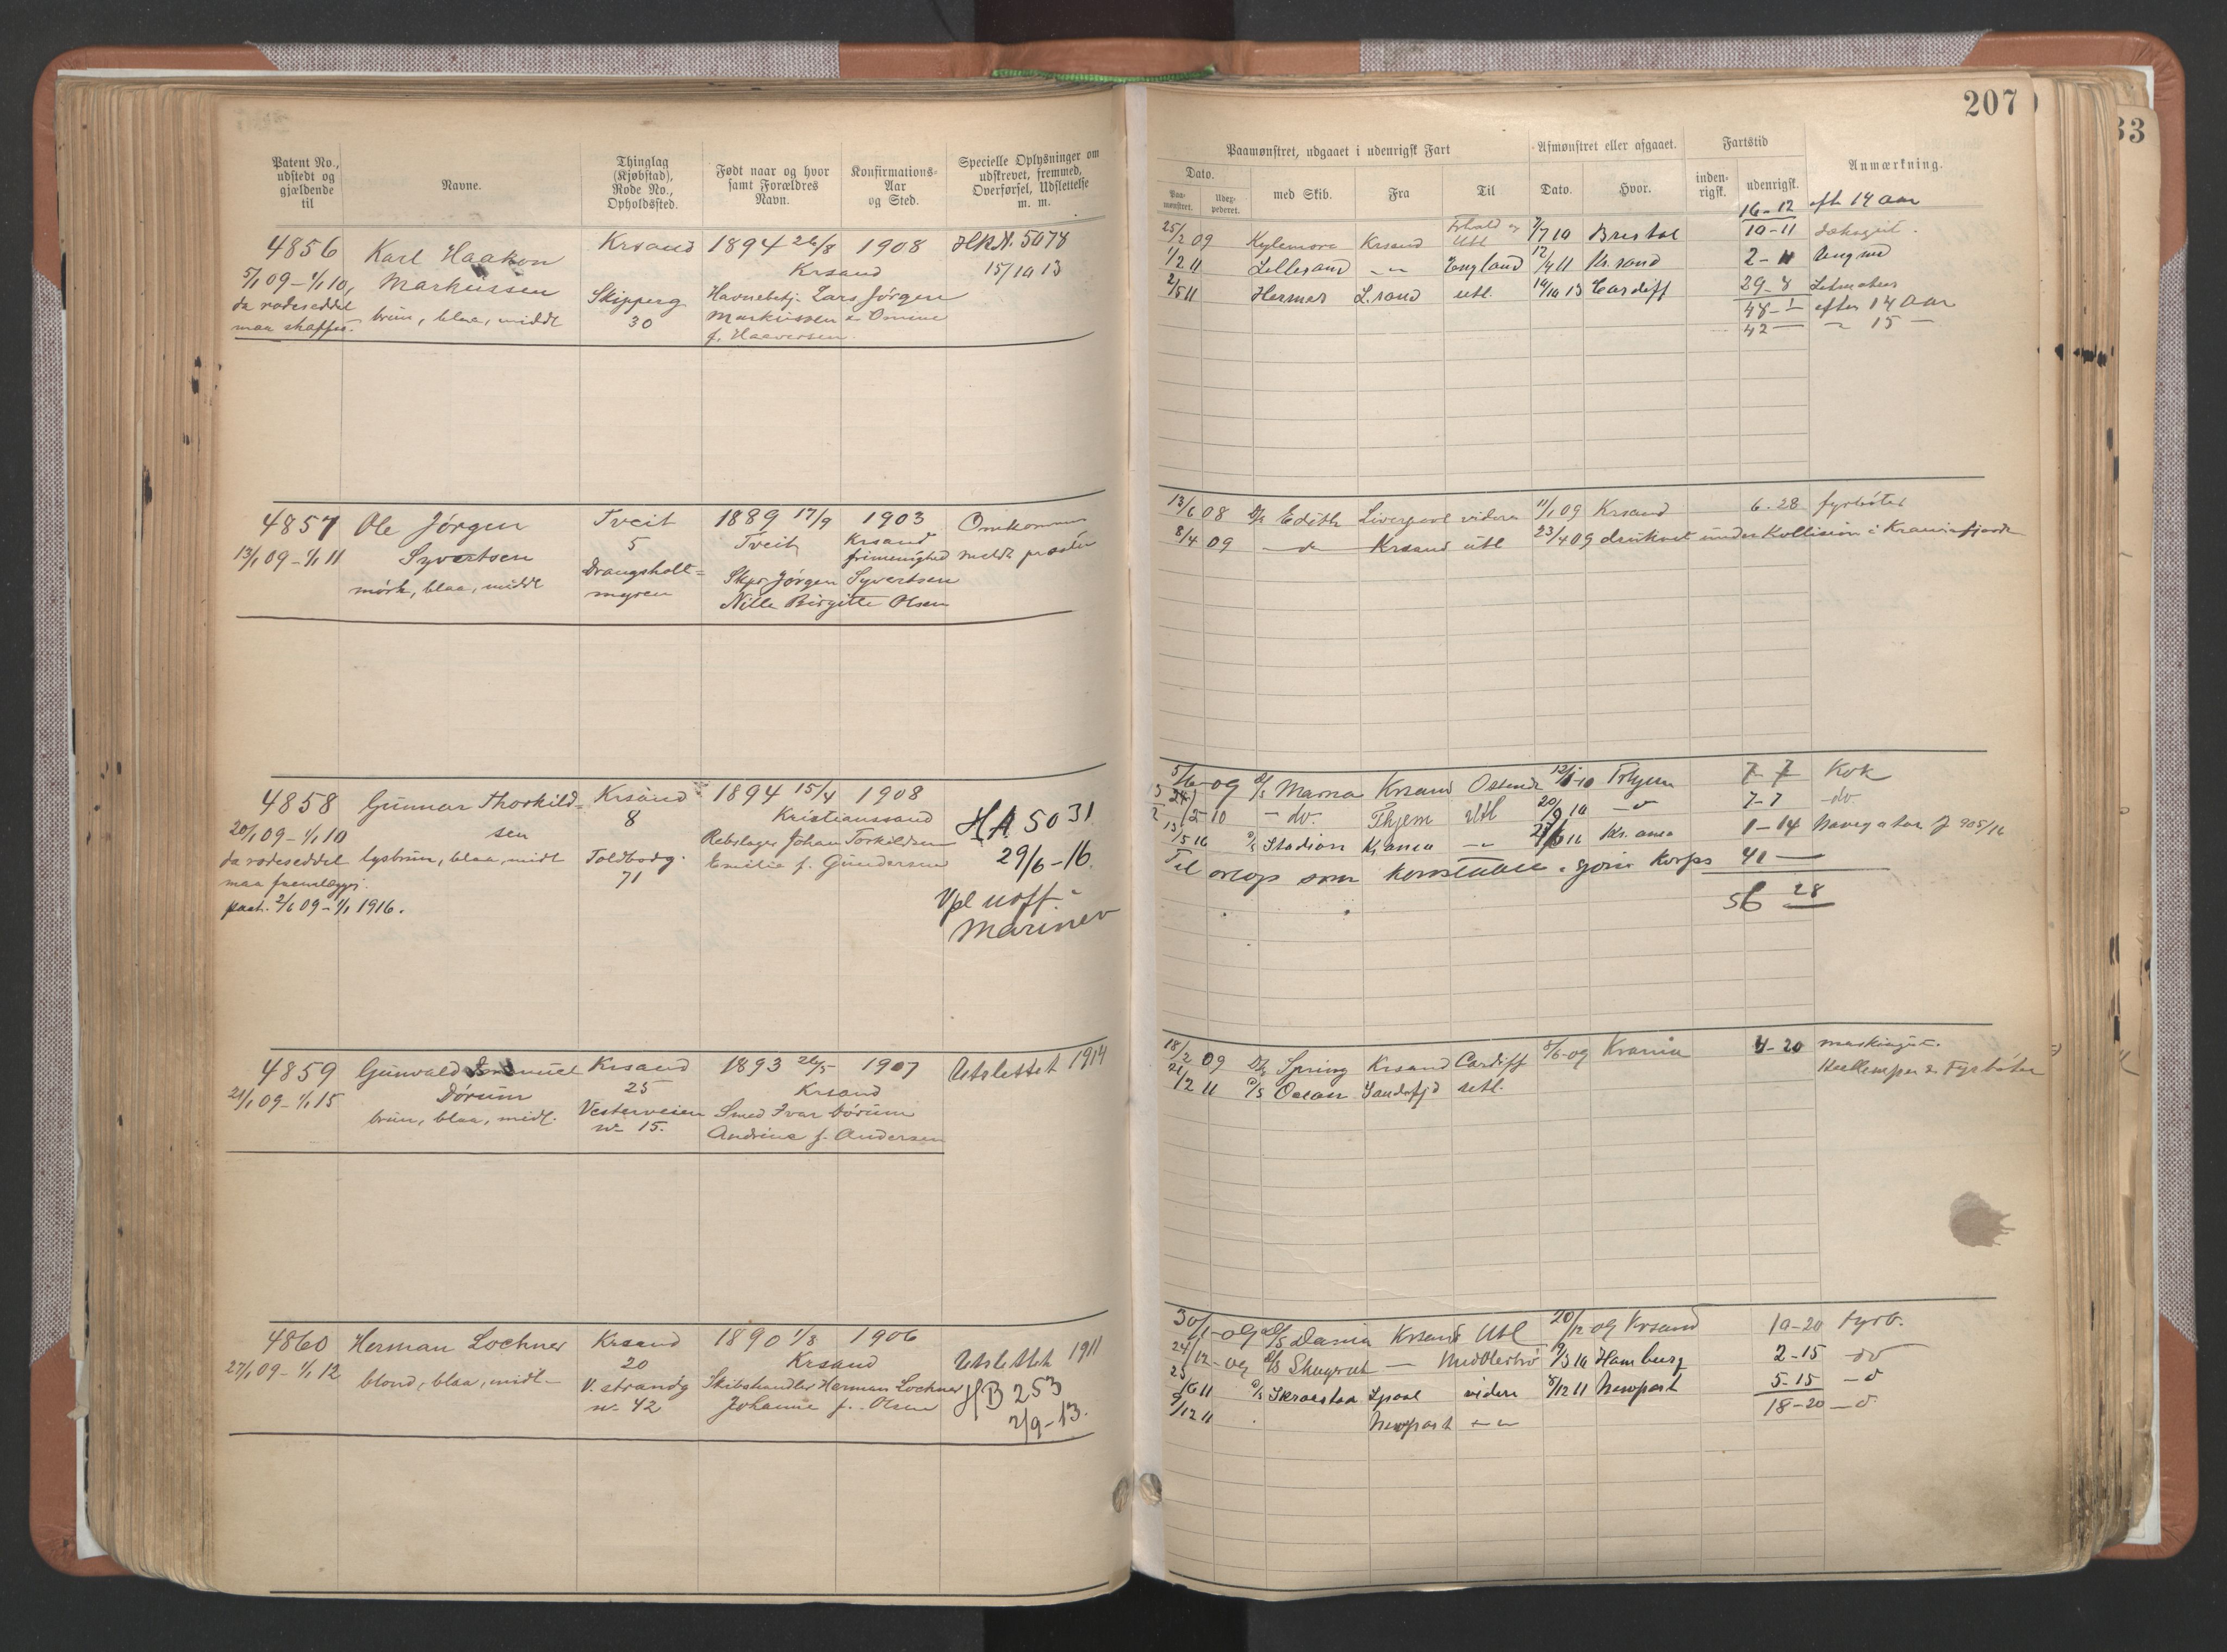 207
33
Patent No., udstedt og gjældende til
Navne.
Thinglag (Kjøbstad), Rode No., Opholdssted.
Født naar og hvor samt Forældres Navn.
Konfirmations-Aar og Sted.
Specielle Oplysninger om udskrevet, fremmed, Overførsel, Udslettelse m. m.
Paamønstret, udgaaet i udenrigsk Fart
Afmønstret eller afgaaet.
Fartstid
Anmærkning.
Dato.
Paamønstret.
Udexpederet.
med Skib.
Fra
Til
Dato.
Hvor.
indenrigsk.
udenrigsk.
4856 Karl Haakon Krsand 1894 26/8 1908 HRN. 5078
5/1 09 - 1/1 10, Markussen Krsand 15/10 13
da rodeseddel Skipperg Havnebetj. Lars Jørgen
maa skaffes. brun, blaa, middl 30 Markussen & Omine
f. Haaversen
16-12 eft 14 aar
25/2 09 Kylemore Krsand Utl 7/7 10 Bristol 10-11 Dæksgut.
1/2 11 Lillesand -"- England 12/4 11 Kr.sand 2-11 Ungmd
2/5 11 Hermes L.sand utl. 14/10 13 Cardiff 29-8 Letmatros
48-1 efter 14 Aar
42 — -"- 15 —
4857 Ole Jørgen Tveit 1889 17/9 1903 Omkommen
13/1 09 - 1/1 11 Syvertsen 5 Tveit Krsand
frimenighed meldt præsten
mørk, blaa, middl Drangsholt= Skpr Jørgen Syvertsen
myren Nille Birgitte Olsen
13/6 08 D/s Edith Liverpool videre 11/1 09 Krsand 6.28 fyrbøter
8/4 09 —do— Krsand utl 23/4 09 druknet under Kollision i Kraniafjorden
4858 Gunnar Thorkild= Krsand 1894 15/4 1908
20/1 09 - 1/1 10 sen 8 Kristianssand HA 5031
da rodeseddel lysbrun, blaa, midl Toldbodg. Rebslager Johan Torkildsen 29/6-16.
maa fremlægges. 71 Emilie f. Gundersen
pat. 2/6 09 - 1/1 1916. Vpl uoff.
Marinen
5/6-09 D/s Marna Krsand Ostende 12/1-10 Trhjem 7-7 Kok
2/2-10 -do- Thjem Utl 20/9 10 -o 7-7 -do-
13/5 16 D/s Stadion Kr.ania -"- Kr.ania 1-14 Navigatør J 905/16
Til orlogs som 41 —
56 28
4859 Gunvald Krsand 1893 26/5 1907 Utslettet 1914
21/1 09 - 1/1 15 Dørum 25 Krsand
brun, blaa, midl. Vesterveien Smed Ivar Dørum
no 15. Andrine f. Andersen
18/2 09 D/s Spring Krsand Cardiff 5/6-09 Krania 4-20 maskingut.
21/2 11 D/s Ocean Sandefjd utl. Kullemper & Fyrbøter
4860 Herman Lochner Krsand 1890 1/8 1906
27/1 09 - 1/1 12 20 Krsand Utslettet 1911
blond, blaa, midl- V. strandg Skibshandler Herman Lochner HB 253
no 42 Johanne f. Olsen 2/9-13.
30/1-09 D/s Dania Krsand Utl 20/12 09 Krsand 10-20 Fyrb.
24/12-09 D/s Skugvat — Middlesbro 9/3 10 Hamburg 2-15 do
25/6 11 D/s Lpool videre 8/12 11 Newport 5-15 -o
9/12 11 Newport -"- 18-20 -o